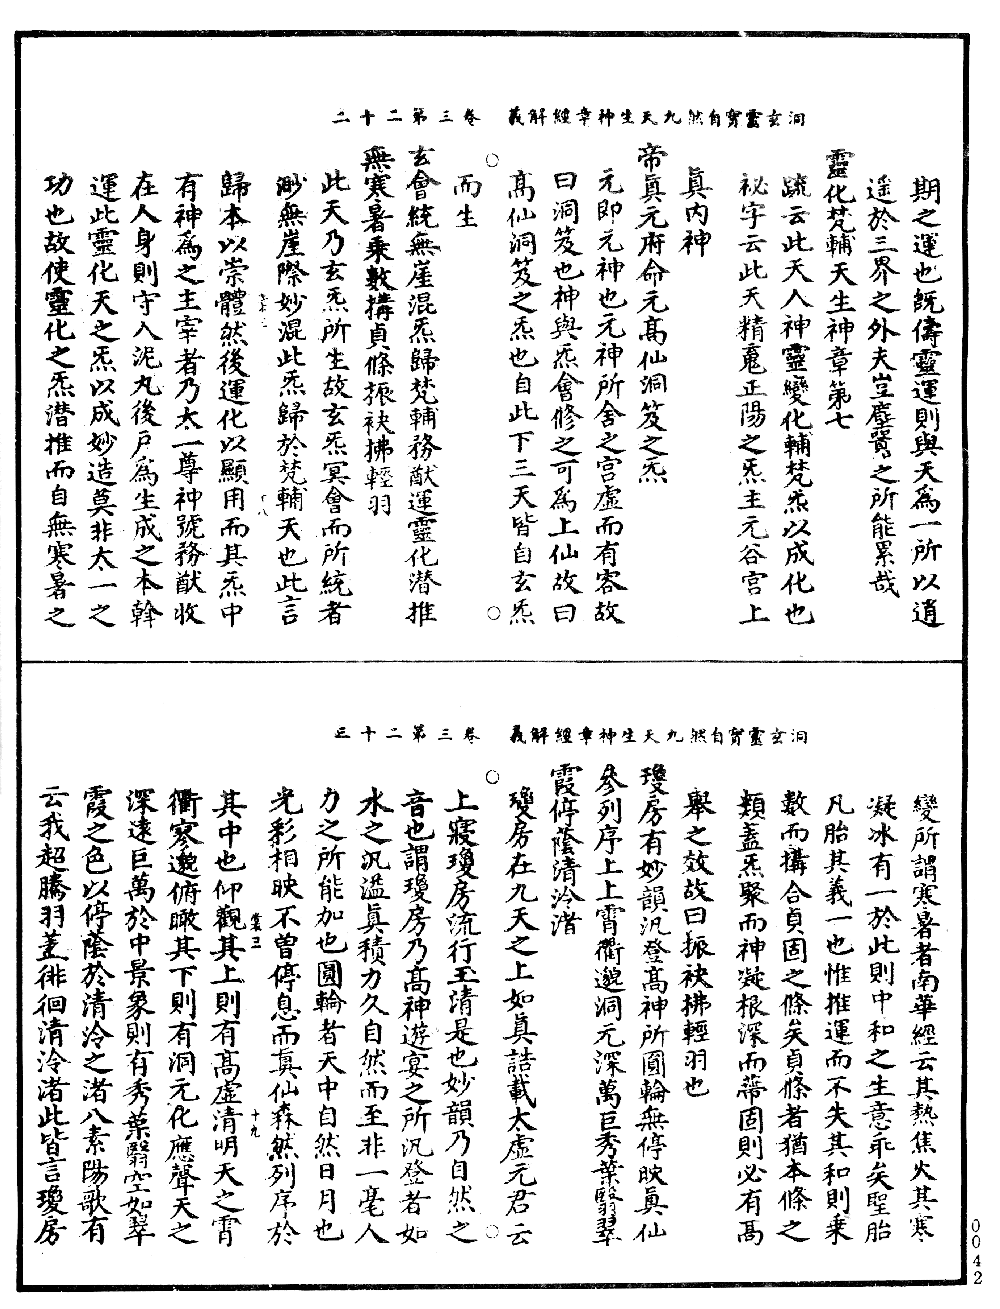 洞玄靈寳自然九天生神章經解義　卷三第二十二
期之運也旣儔靈運則與天爲一所以逍
遥於三界之外夫豈塵質之所能累哉
靈化梵輔天生神章第七
疏云此天人神靈變化輔梵炁以成化也
祕字云此天精魂正陽之炁主元谷宫上
眞内神
帝眞元府命元髙仙洞笈之炁
元即元神也元神所舍之宫虚而有容故
曰洞笈也神與炁會修之可爲上仙故曰
髙仙洞笈之炁也自此下三天皆自玄炁
而生
玄會統無崖混炁歸梵輔務猷運靈化潜推
無寒暑乘數搆貞條振袂拂輕羽
此天乃玄炁所生故玄炁冥會而所統者
渺無崖際妙混此炁歸於梵輔天也此言
歸本以崇體然後運化以顯用而其炁中
有神爲之主宰者乃太一尊神號務猷收
在人身則守入泥丸後戸爲生成之本幹
運此靈化天之炁以成妙造莫非太一之
功也故使靈化之炁潜推而自無寒暑之
洞玄靈寳自然九天生神章經解義　卷三第二十三
變所謂寒暑者南華經云其熱焦火其寒
凝冰有一於此則中和之生意乖矣聖胎
凡胎其義一也惟推運而不失其和則乘
數而搆合貞固之條矣貞條者猶本條之
類蓋炁聚而神凝根深而蔕固則必有髙
舉之效故曰振袂拂輕羽也
瓊房有妙韻汎登髙神所圓輪無停映眞仙
參列序上上霄衢邈洞元深萬巨秀葉翳翠
霞停蔭清泠渚
瓊房在九天之上如眞誥載太虚元君云
上寢瓊房流行玉清是也妙韻乃自然之
音也謂瓊房乃髙神遊宴之所汎登者如
水之汎溢眞積力久自然而至非一毫人
力之所能加也圓輪者天中自然日月也
光彩相映不曾停息而眞仙森然列序於
其中也仰觀其上則有髙虚清明天之霄
衢寥邈俯瞰其下則有洞元化應聲天之
深遠巨萬於中景象則有秀葉翳空如翠
霞之色以停蔭於清泠之渚八素陽歌有
云我超騰羽蓋徘徊清泠渚此皆言瓊房
十九
0042